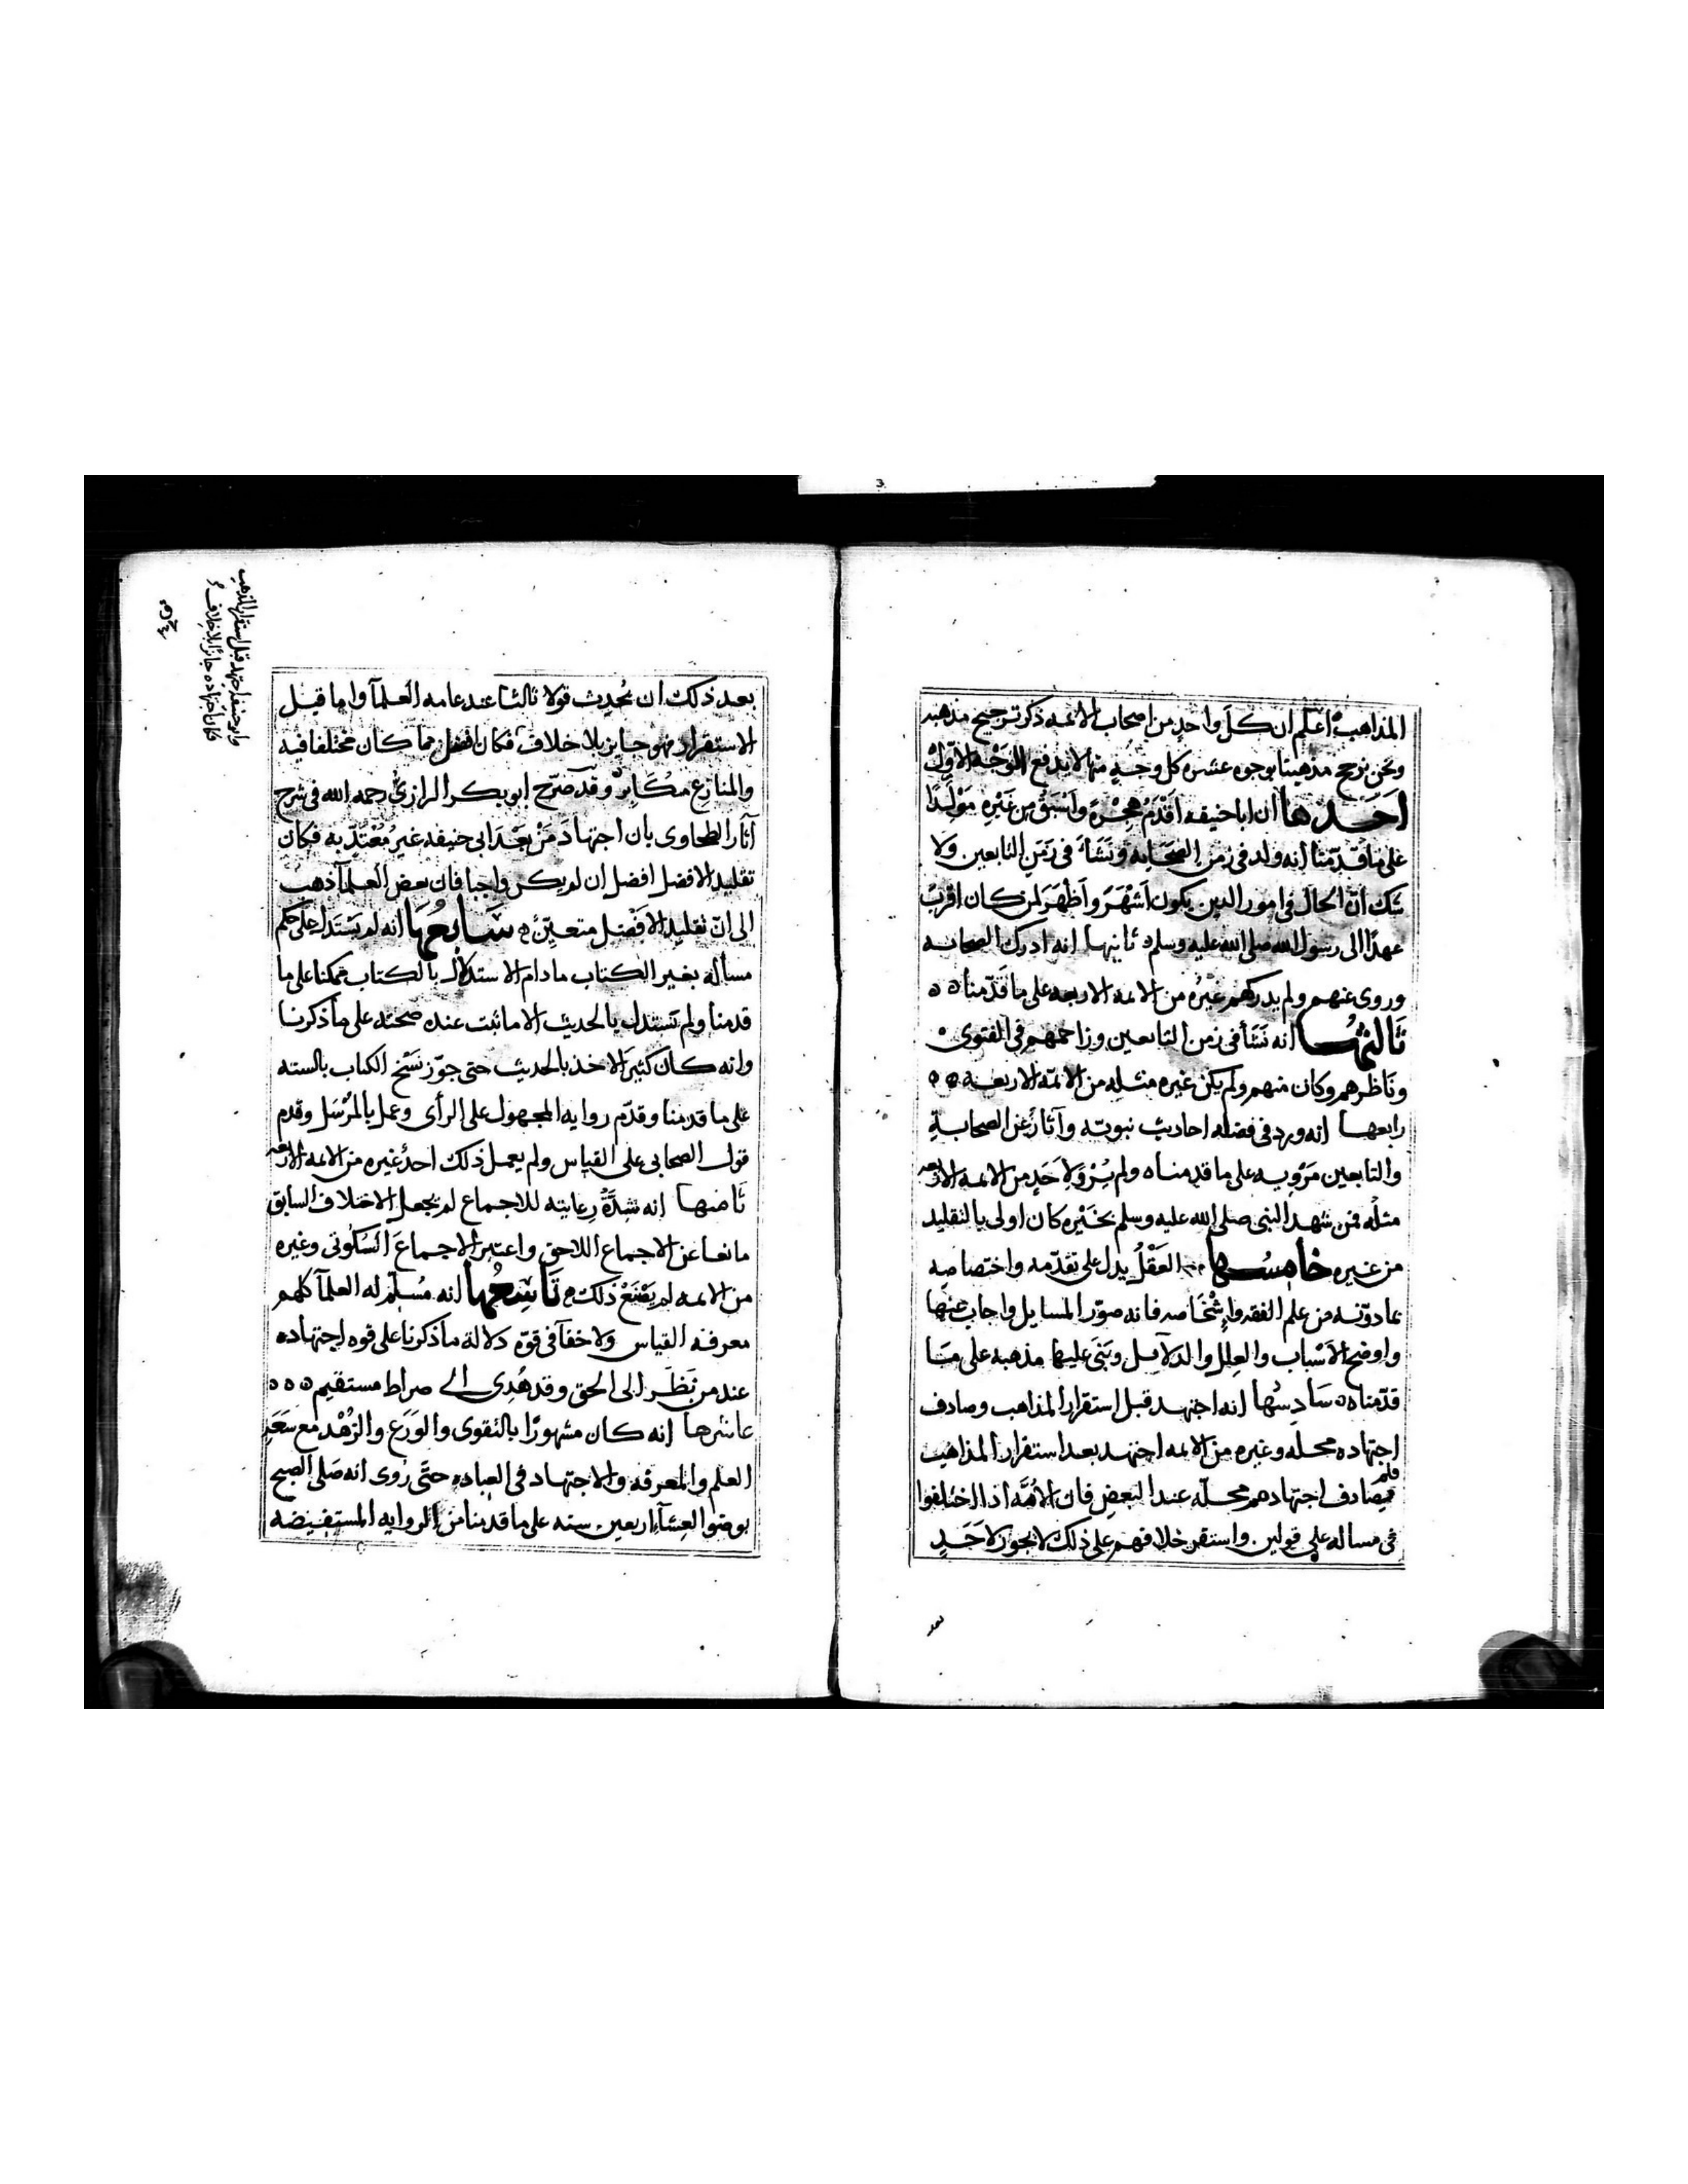 المذاهب اعلم ان كل واحد من اصحاب الائمه ذكر ترجيح مذهبه
ونحن نرجح مذهبنا بوجوه عشره كل وجه منها لا يدفع الوجه الاول
احدها ان ابا حنيفه اَقْدَمُ هِجْرَة وَاَسْبَقُ من غَيْرِه مَوْلِدًا
على ما قدّمنا انه ولد فى زمن الصحابه ونَشَاَ فى زَمَنِ التابعين ولا
شك انّ الحال فى امور الدين يكون اَشْهَرَ واَظْهَرَ لمن كان اقرب
عهدًا الى رسول الله صلى الله عليه وسلم ثانيها انه ادرك الصحابه
وروى عنهم ولم يدركهم غيرُه من الائمه الاربعه على ما قَدّمنا ه ه
ثَالثُهَا انه نَشَأ فى زمن التابعين وزاحمهم فى الفتوى
ونَاظرهم وكان منهم ولم يكن غيره مثله من الائمّه الاربعه ه ه
رابعها انه ورد فى فضله احاديث نبويّه وآثارٌ عن الصحابةِ
والتابعين مَرْوِيه على ما قدمناه ولم يُرْوَ لاَحَدٍ من الائمه الاربعه
مثلُه فمن شهد النبى صلى الله عليه وسلم بخَيْرِه كان اولى بالتقليد
من غيره خامسُها العَقْلُ يدل على تقدّمه واختصاصه
بما دوّنه من علم الفقه وإشْخَاصه فانه صوّر المسايل واجاب عنها
واوضح الاَسْباب والعِلل والدلآيل وبَنَى عليها مذهبه على مَا
قدّمناه ه سَادِسُها انه اجتهد قبل استقرار المذاهب وصادف
اجتهاده محله وغيره من الائمه اجتهد بعد استقرار المذاهب
فلم
يصادف اجتهادهم محلّه عند البَعضِ فان الاُمَّه اذا اختلفوا
فى مساله على قولين واستقر خلافهم على ذلك لا يجوز لاَحَدٍ
بعد
بعد ذلك ان يُحدِث قولا ثالثا عند عامه العلمآ واما قبل
الاستقرار فهو جايز بلا خلاف فكان افضل مما كان مختلفا فيه
والمنازع مكَابِرٌ وقد صَرّح ابو بكر الرازىُّ رحمه الله فى شرح
آثار الطحاوى بان اجتهادَ مَنْ بَعْدَ ابى حنيفه غيرُ مُعْتَدٍّ به فكان
تقليد الافضل افضل ان لم يكن واجبا فان بعض العلمآ ذهب
الى انّ تقليد الاَفْضل متعيّن ه سَابعُهَا انه لم يَستدل على حكم
مسأله بغير الكتاب ما دام الاستدلال بالكتاب ممكنا على ما
قدمنا ولم يَستدل بالحديث الا ما ثبت عنده صحته على ما ذكرنا
وانه كان كثيرَ الاخذ بالحديث حتى جوّز نَسْخ الكتاب بالسنه
على ما قدمنا وقدّم روايه المجهول على الرأى وعمل بالمُرْسَل وقدم
قول الصحابى على القياس ولم يعمل ذلك احدٌ غيره من الائمه الاربعه
ثَامنها انه لشِدَّةُ رِعَايته للاجماع لم يجعل الاختلاف السابق
مانعا عن الاجماع اللاحق واعتبر الاجماعَ السُكُوتى وغيره
من الائمه لم يَقْنَعْ ذلك ه تَاسِعُها انه مُسَلّم له العلمآ كلهم
معرفه القياس ولا خفآ فى قوّه دلالة ما ذكرنا على قوه اجتهاده
عند من نَظَر الى الحق وقد هُدِى الى صراط مستقيم ه ه ه
عاشرها انه كان مشهورًا بالتقوى والوَرَع والزُهْد مع سَعَهِ
العلم والمعرفه والاجتهاد فى العباده حتّى رُوى انه صَلى الصبح
بوضوِ العِشَآ اربعين سنه على ما قدمنا من الروايه المستفيضه
وابو حنيفه اجتهد قبل استقرار المذهب
فكان اجتهاده جائزًا بلا خلاف